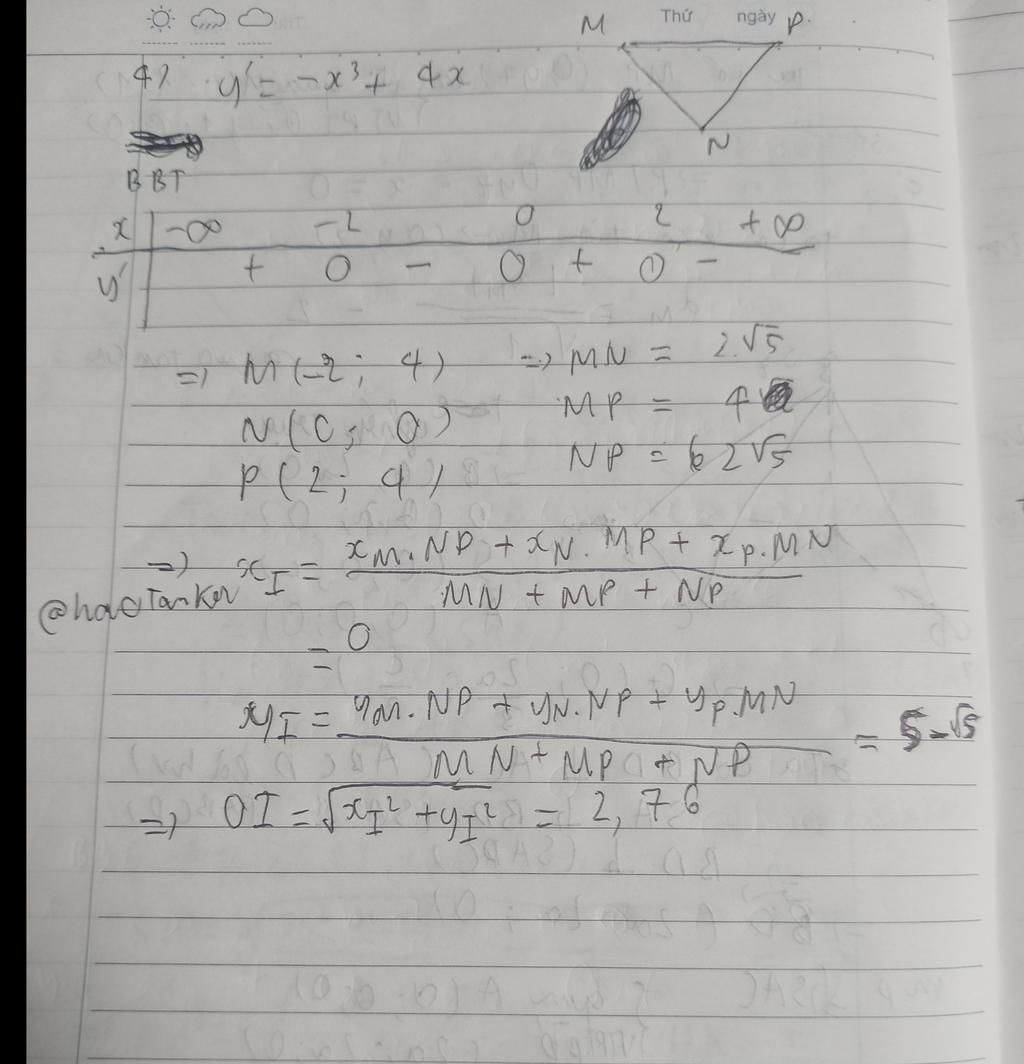 M Thứ ngày P.
4) y' = -x³ + 4x
N
BBT
x -∞ -2 0 2 +∞
y' + 0 - 0 + 0 -
=> M(-2; 4) => MN = 2.√5
N(0; 0) MP = 4
P(2; 4) NP = 2√5
=> x_I = (x_M.NP + x_N.MP + x_P.MN) / (MN + MP + NP)
@haoTanker
= 0
y_I = (y_M.NP + y_N.NP + y_P.MN) / (MN + MP + NP) = 5-√5
=> OI = √(x_I² + y_I²) = 2,76